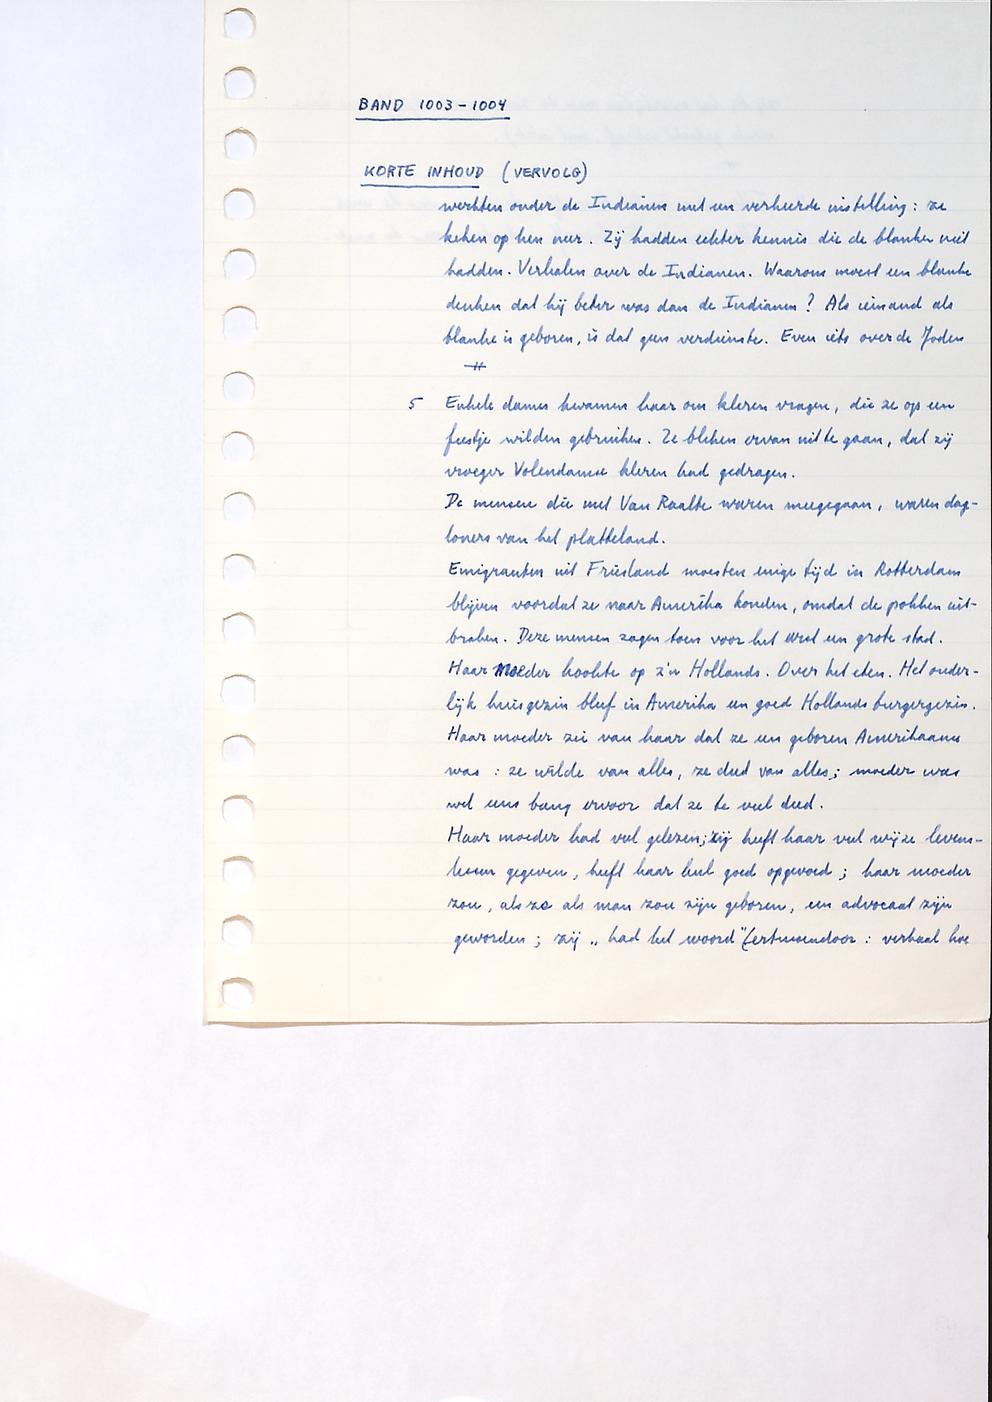 BAND 1003-1004
KORTE INHOUD (VERVOLG)
werkten onder de Indianen met een verkeerde instelling: ze
keken op hen neer. Zij hadden echter kennis die de blanken niet
hadden. Verhalen over de Indianen. Waarom moest een blanke
denken dat hij beter was dan de Indianen? Als iemand als
blanke is geboren, is dat geen verdienste. Even iets over de Joden
5 Enkele dames kwamen haar om kleren vragen, die ze op een
feestje wilden gebruiken. Ze bleken ervan uit te gaan, dat zij
vroeger Volendamse kleren had gedragen.
De mensen die met Van Raalte waren meegegaan, waren dag-
loners van het platteland.
Emigranten uit Friesland moesten enige tijd in Rotterdam
blijven voordat ze naar Amerika konden, omdat de pokken uit-
braken. Deze mensen zagen toen voor het eerst een grote stad.
Haar moeder kookte op z'n Hollands. Over het eten. Het ouder-
lijk huisgezin bleef in Amerika een goed Hollands burgergezin.
Haar moeder zei van haar dat ze een geboren Amerikaanse
was : ze wilde van alles, ze deed van alles; moeder was
wel eens bang ervoor dat ze te veel deed.
Haar moeder had veel gelezen; zij heeft haar veel wijze levens-
lessen gegeven, heeft haar heel goed opgevoed ; haar moeder
zou, als ze als man zou zijn geboren, een advocaat zijn
geworden ; zij „ had het woord" (ertussendoor : verhaal hoe